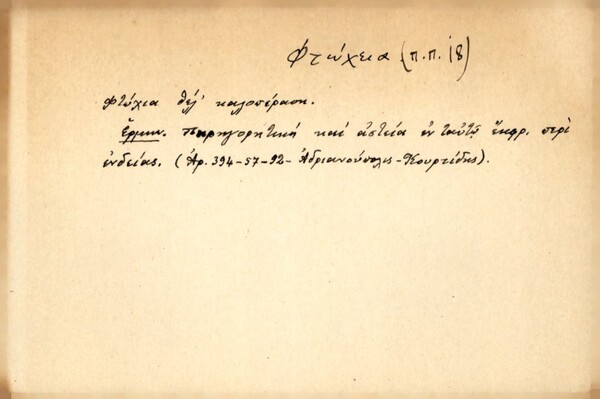 Φτώχεια (π.π. 18)
Φτώχια θέλ' καλοπέραση.
Ἑρμην. Παρηγορητική καί ἀστεία ἐν ταὐτῷ ἔκφρ. περὶ
ἐνδείας. (Ἀρ. 394-57-92- Ἀδριανούπολις-Κουρτίδης).